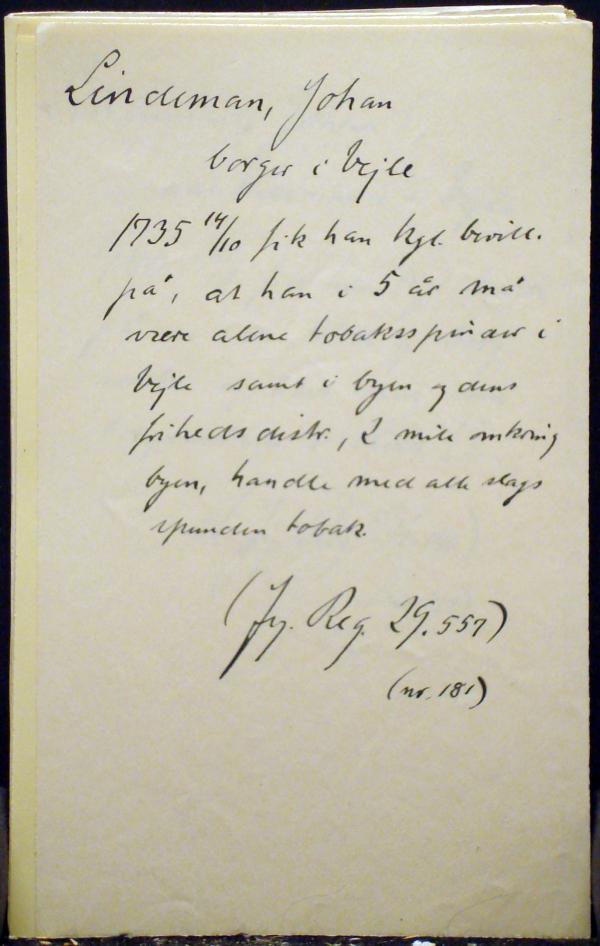 Lindeman, Johan
borger i Vejle
1735 14/10 fik han kgl. bevill.
på, at han i 5 år må
være alene tobaksspinder i
Vejle samt i byen og dens
friheds distr., 2 mile omkring
byen, handle med alle slags
spunden tobak.
(Jy. Reg. 29.557)
(nr. 181)